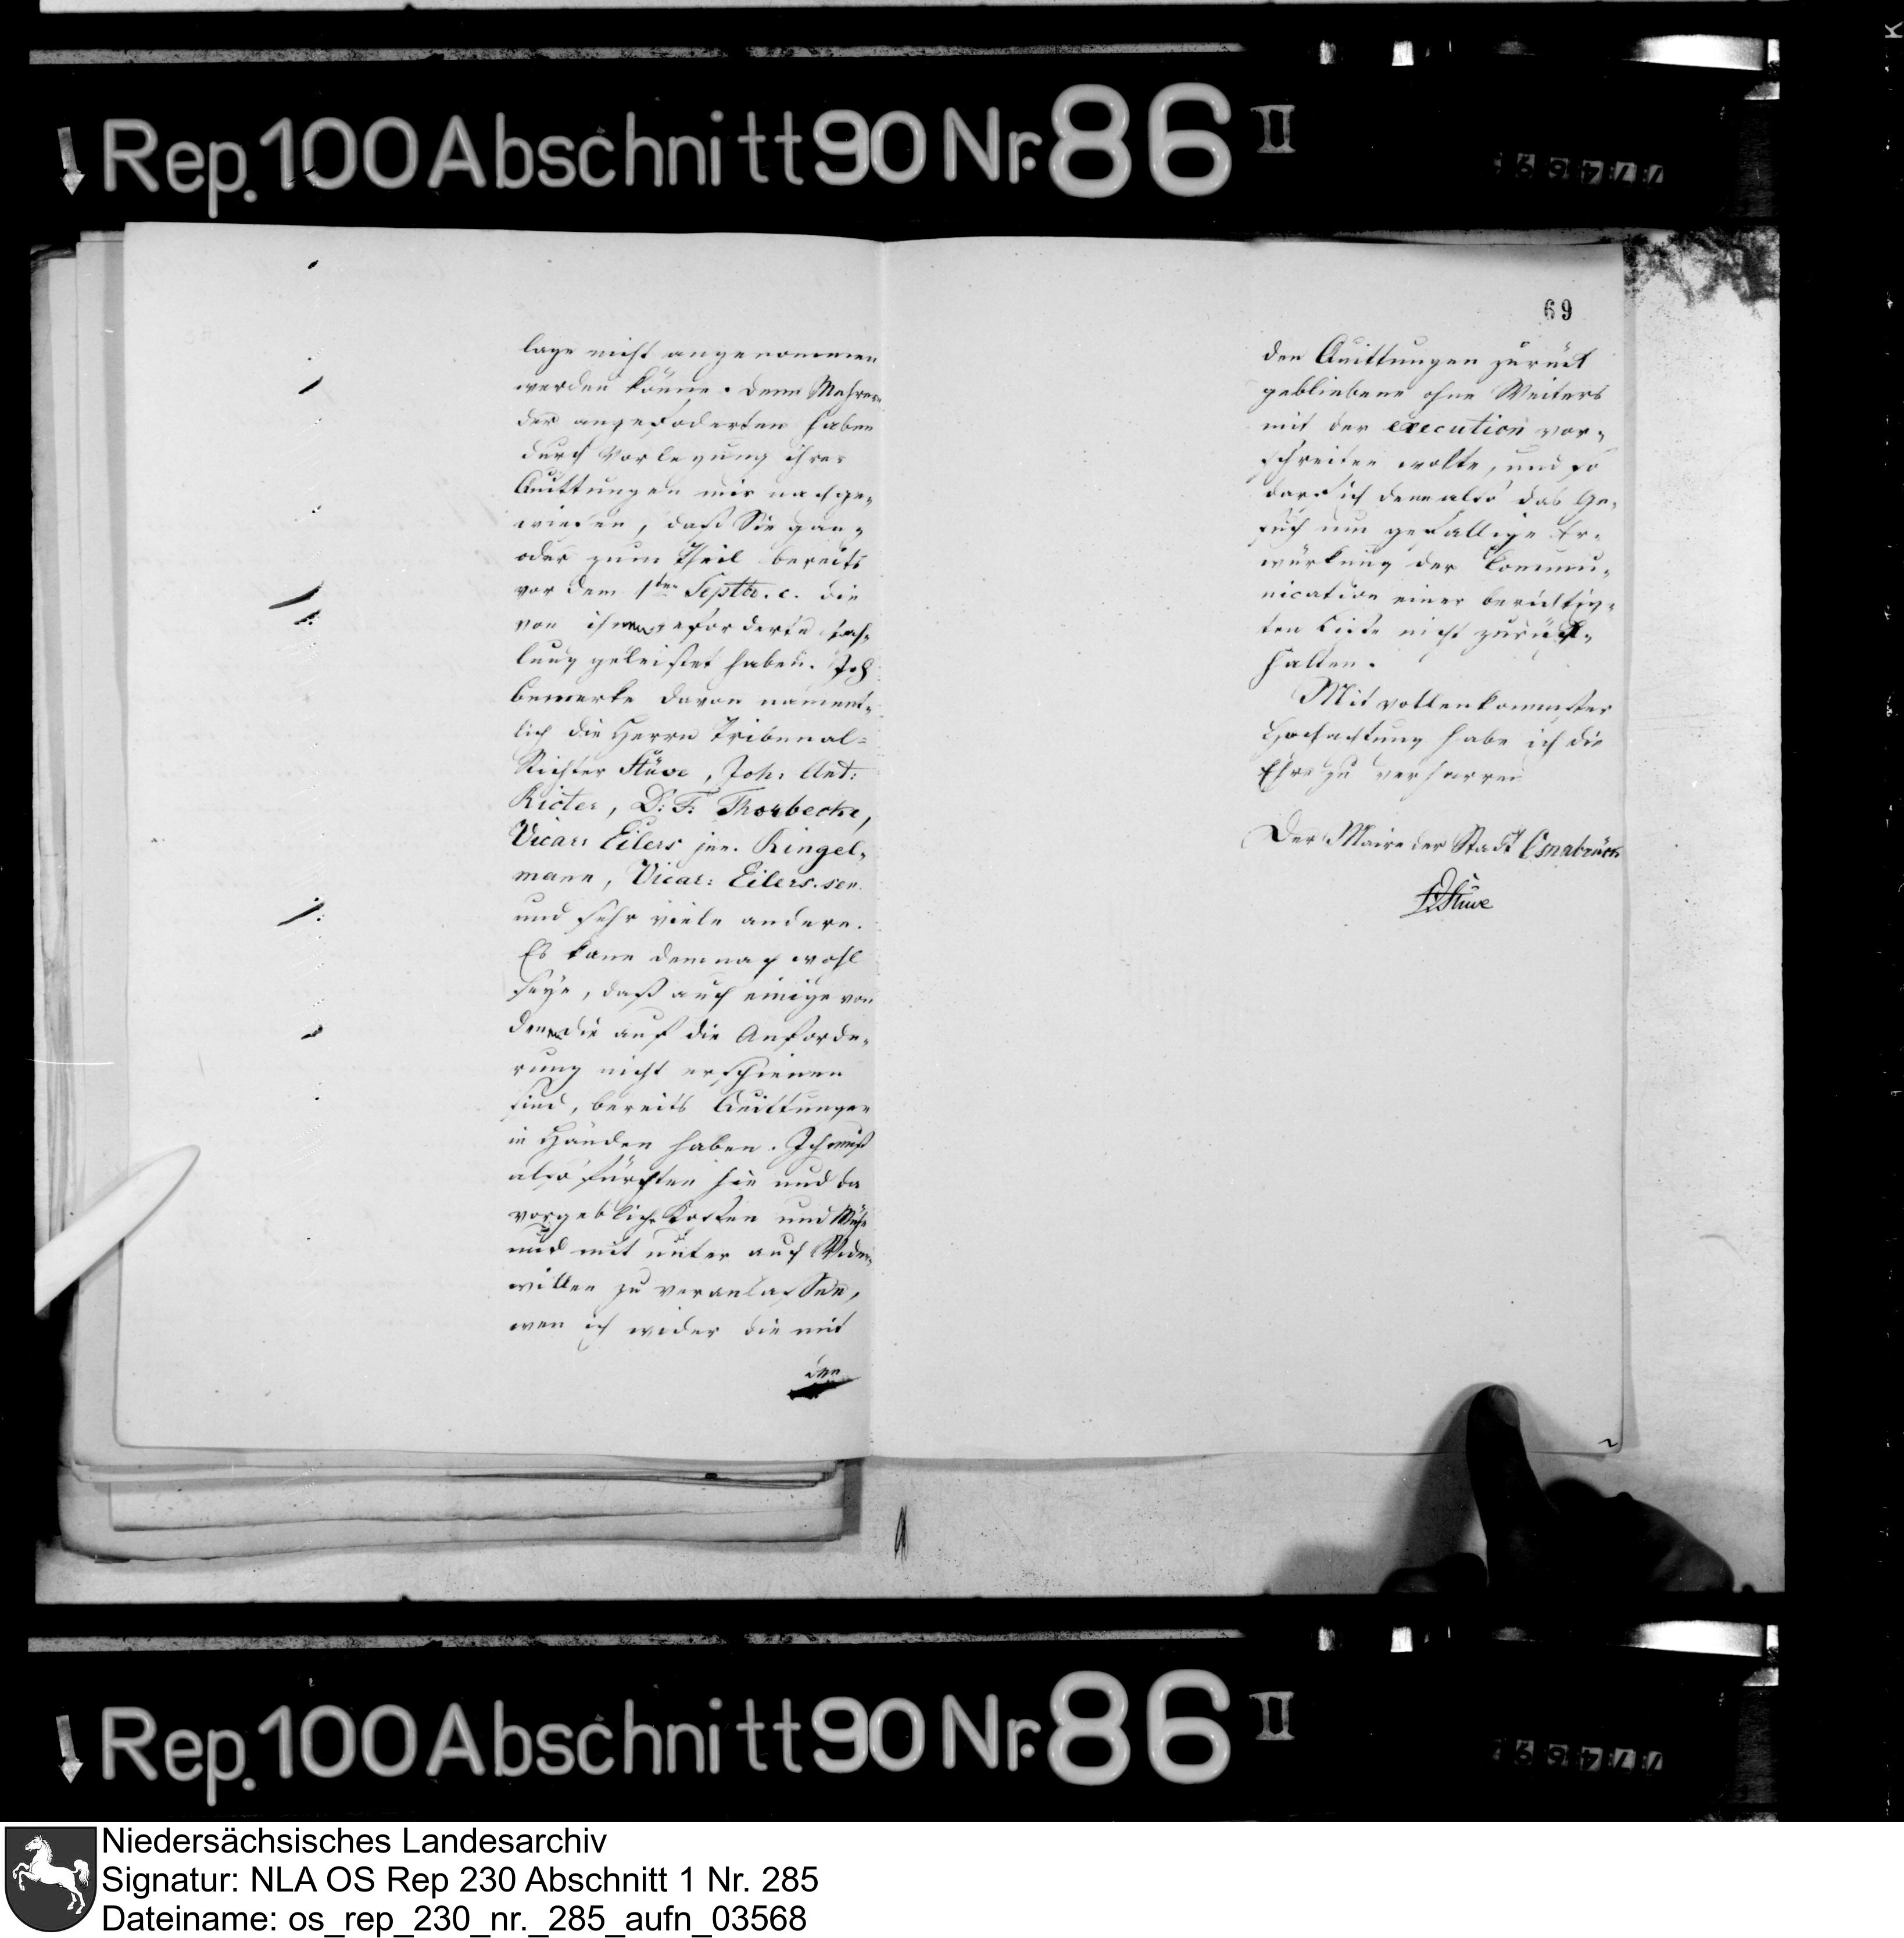 Rep. 100 Abschnitt 90 Nr. 86 II
lage nicht angenommen
werden könne. Denn Mehrere
der angefoderten haben
durch Vorlegung ihrer
Quittungen mir nachge-
wiesen, daß Sie ganz
oder zum Theil bereits
vor dem 1ten Septbr. c. die
von ihnen geforderte Zah-
lung geleistet haben. Ich
bemerke davon nament-
lich die Herrn Tribunal-
Richter Stüve, Joh: Ant:
Ricter, D: F: Thorbecke,
Vicar: Eilers jun. Ringel-
mann, Vicar: Eilers sen.
und sehr viele andere.
Es kann demnach wohl
seyn, daß auch einige von
denen die auf die Anforde-
rung nicht erschienen
sind, bereits Quittungen
in Händen haben. Ich muß
also fürchten hie und da
vergebliche Kosten und Mühe
und mit unter auch Wider-
willen zu veranlassen,
wen ich wider die mit
den
69
den Quittungen zurück
gebliebene ohne Weiters
mit der execution vor-
schreiten wolte, und so
darf ich denn also das Ge-
such um gefällige Er-
würkung der Commu-
nication einer berichtig-
ten Liste nicht zurück-
halten.
Mit vollenkommster
Hochachtung habe ich die
Ehre zu verharren
Der Maire der Stadt Osnabrück
Stüve
Rep. 100 Abschnitt 90 Nr. 86 II
Niedersächsisches Landesarchiv
Signatur: NLA OS Rep 230 Abschnitt 1 Nr. 285
Dateiname: os_rep_230_nr._285_aufn_03568